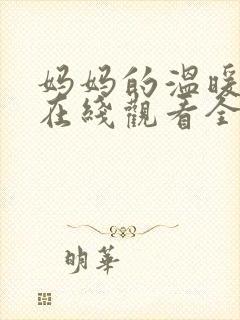 妈妈的温暖
在綫觀看全
明華